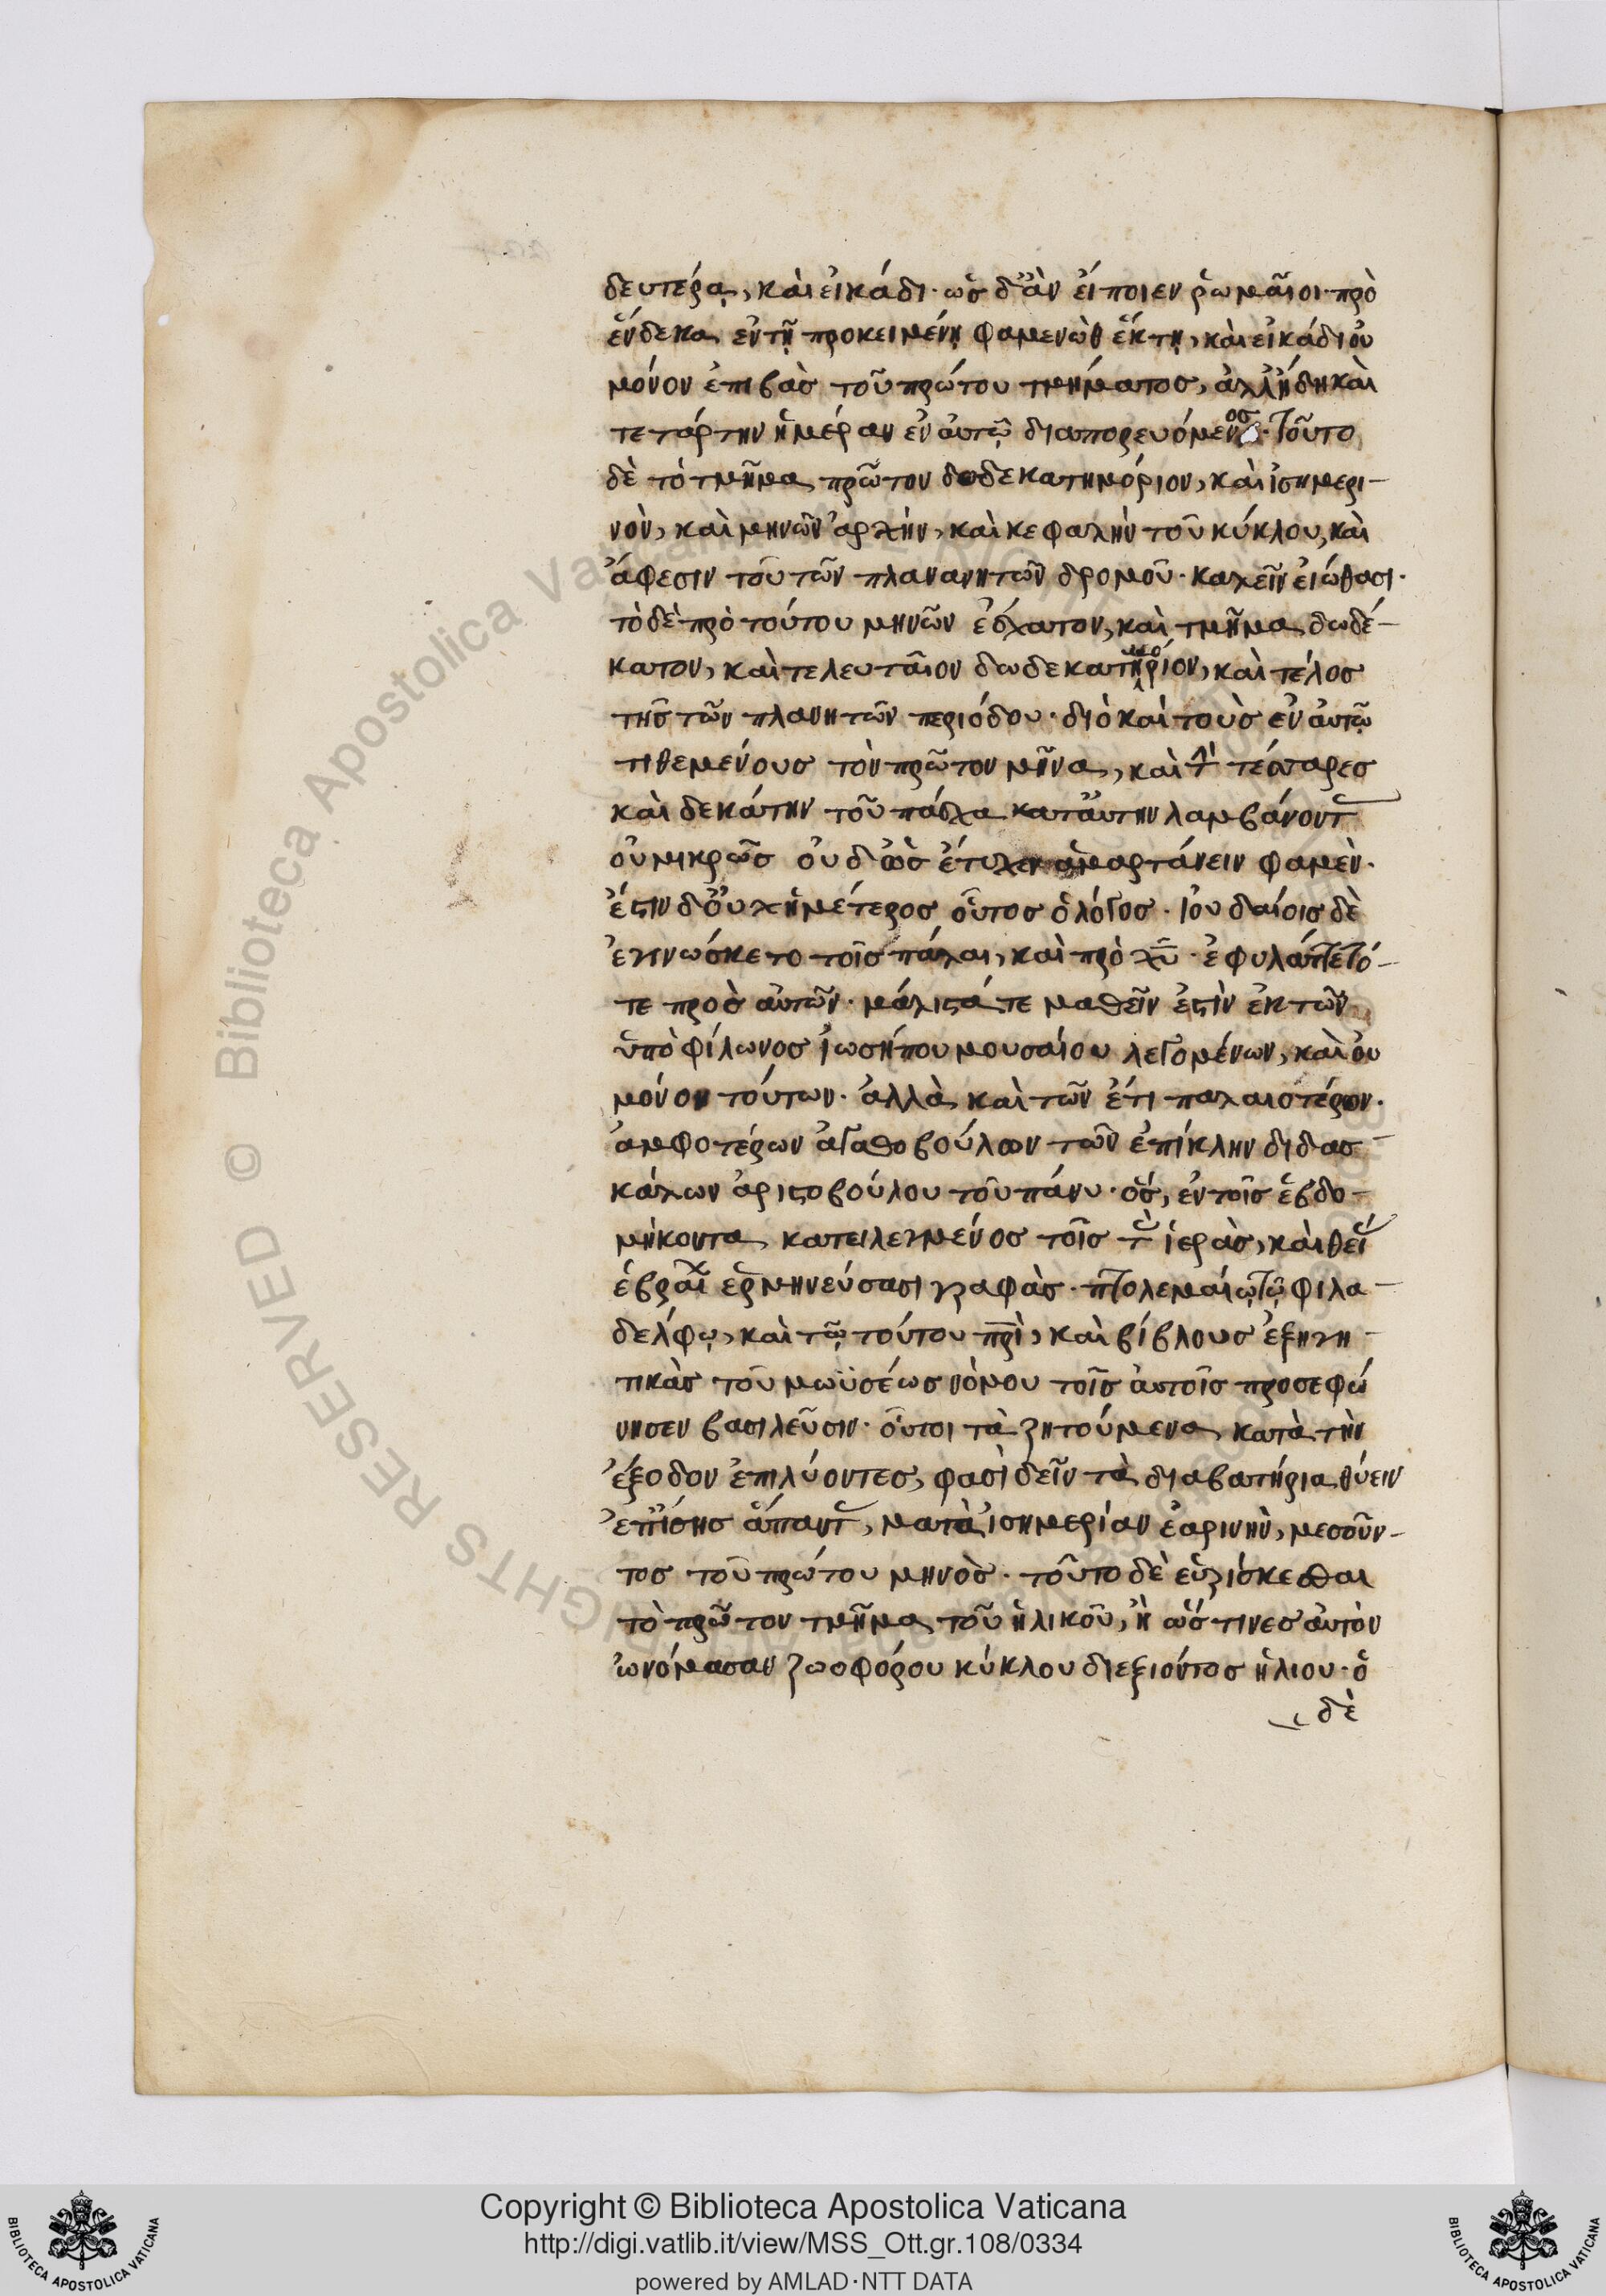 δευτέρᾳ, καὶ εἰκάδι· ὡς δ' ἂν εἴποιεν ῥωμαῖοι· πρὸ
ἕνδεκα, ἐν τῇ προκειμένῃ φαμενὼθ ἕκτῃ, καὶ εἰκάδι οὐ
μόνον ἐπιβὰς τοῦ πρώτου τμήματος, ἀλλ' ἤδη καὶ
τετάρτην ἡμέραν ἐν αὐτῷ διαπορευόμενος. Τοῦτο
δὲ τὸ τμῆμα, πρῶτον δωδεκατημόριον, καὶ ἰσημερι-
νὸν, καὶ μηνῶν ἀρχὴν, καὶ κεφαλὴν τοῦ κύκλου, καὶ
ἄφεσιν τοῦ τῶν πλανανητῶν δρομοῦ· καλεῖν εἰώθασι·
τὸ δὲ πρὸ τούτου μηνῶν ἔσχατον, καὶ τμῆμα, δωδέ-
κατον, καὶ τελευταῖον δωδεκατημόριον, καὶ τέλος
τῆς τῶν πλανητῶν περιόδου· διὸ καὶ τοὺς ἐν αὐτῷ
τιθεμένους τὸν πρῶτον μῆνα, καὶ τὴν τέσσαρες
καὶ δεκάτην τοῦ πάσχα κατ' αὐτὴν λαμβάνοντ
οὐ μικρῶς οὐδ' ὡς ἔτυχεν ἁμαρτάνειν φαμὲν.
ἔστιν δ' οὐχ ἡμέτερος οὗτος ὁ λόγος· Ἰουδαίοις δὲ
ἐγινώσκετο τοῖς πάλαι, καὶ πρὸ χῦ· ἐφυλάττετό-
τε πρὸς αὐτῶν· μάλιστά τε μαθεῖν ἐστὶν ἐκ τῶν
ὑπὸ φίλωνος ἰωσήπου μουσαίου λεγομένων, καὶ οὐ
μόνον τούτων· ἀλλὰ καὶ τῶν ἔτι παλαιοτέρων·
ἀμφοτέρων ἀγαθοβούλων τῶν ἐπίκλην διδασ-
κάλων ἀριστοβούλου τοῦ πάνυ· ὃς, ἐν τοῖς ἑβδο-
μήκοντα κατειλεγμένος τοῖς τὰς ἱερὰς, καὶ θεί
ἑβραΐ ἑρμηνεύσασι γραφὰς· πτολεμαίῳ τῷ φιλα-
δέλφῳ, καὶ τῷ τούτου πρὶ, καὶ βίβλους ἐξηγη-
τικὰς τοῦ μωϋσέως νόμου τοῖς αὐτοῖς προσεφώ
νησεν βασιλεῦσιν· οὗτοι τὰ ζητούμενα κατὰ τὴν
ἔξοδον ἐπιλύοντες, φασὶ δεῖν τὰ διαβατήρια θύειν
ἐπ' ἴσης ἅπαντ, ματὰ ἰσημερίαν ἐαρινὴν, μεσοῦν-
τος τοῦ πρώτου μηνὸς· τοῦτο δὲ εὑρίσκεσθαι
τὸ πρῶτον τμῆμα τοῦ ἡλικοῦ, ἢ ὥς τινες αὐτὸν
ὠνόμασαν ζωοφόρου κύκλου διεξιόντος ἡλίου· ὁ
δὲ
Copyright © Biblioteca Apostolica Vaticana
http://digi.vatlib.it/view/MSS_Ott.gr.108/0334
powered by AMLAD·NTT DATA